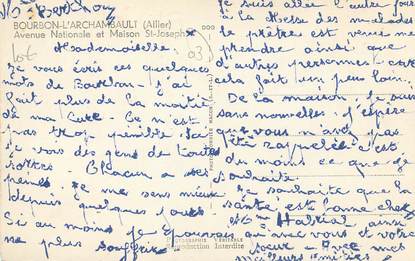 BOURBON-L'ARCHAMBAULT (Allier)
Avenue Nationale et Maison St-Joseph
lot
03
Mademoiselle
Je vous écris ces quelques
mots de Bourbon. J'ai
fait plus de la moitié
de ma cure. Ce n'est
pas trop pénible. Ici
je vois des gens de toutes
sortes Chacun a ses
peines. Je me sens mieux
depuis quelques jours.
Si au moins je pouvais
ne plus souffrir.
je suis allée l'autre jour
à la Messe des malades
le prêtre est venu me
prendre ainsi que
d'autres personnes car
cela fait un peu loin.
De la maison, je suis
sans nouvelles. J'espère
que vous n'avez pas
été rappelée c'est
du moins ce que je
souhaite.
Je souhaite que la
santé est bonne chez
ainsi que vous votre
soeur. Avec mes
meilleurs amitiés
PHOTOGRAPHIE VÉRITABLE
Reproduction Interdite